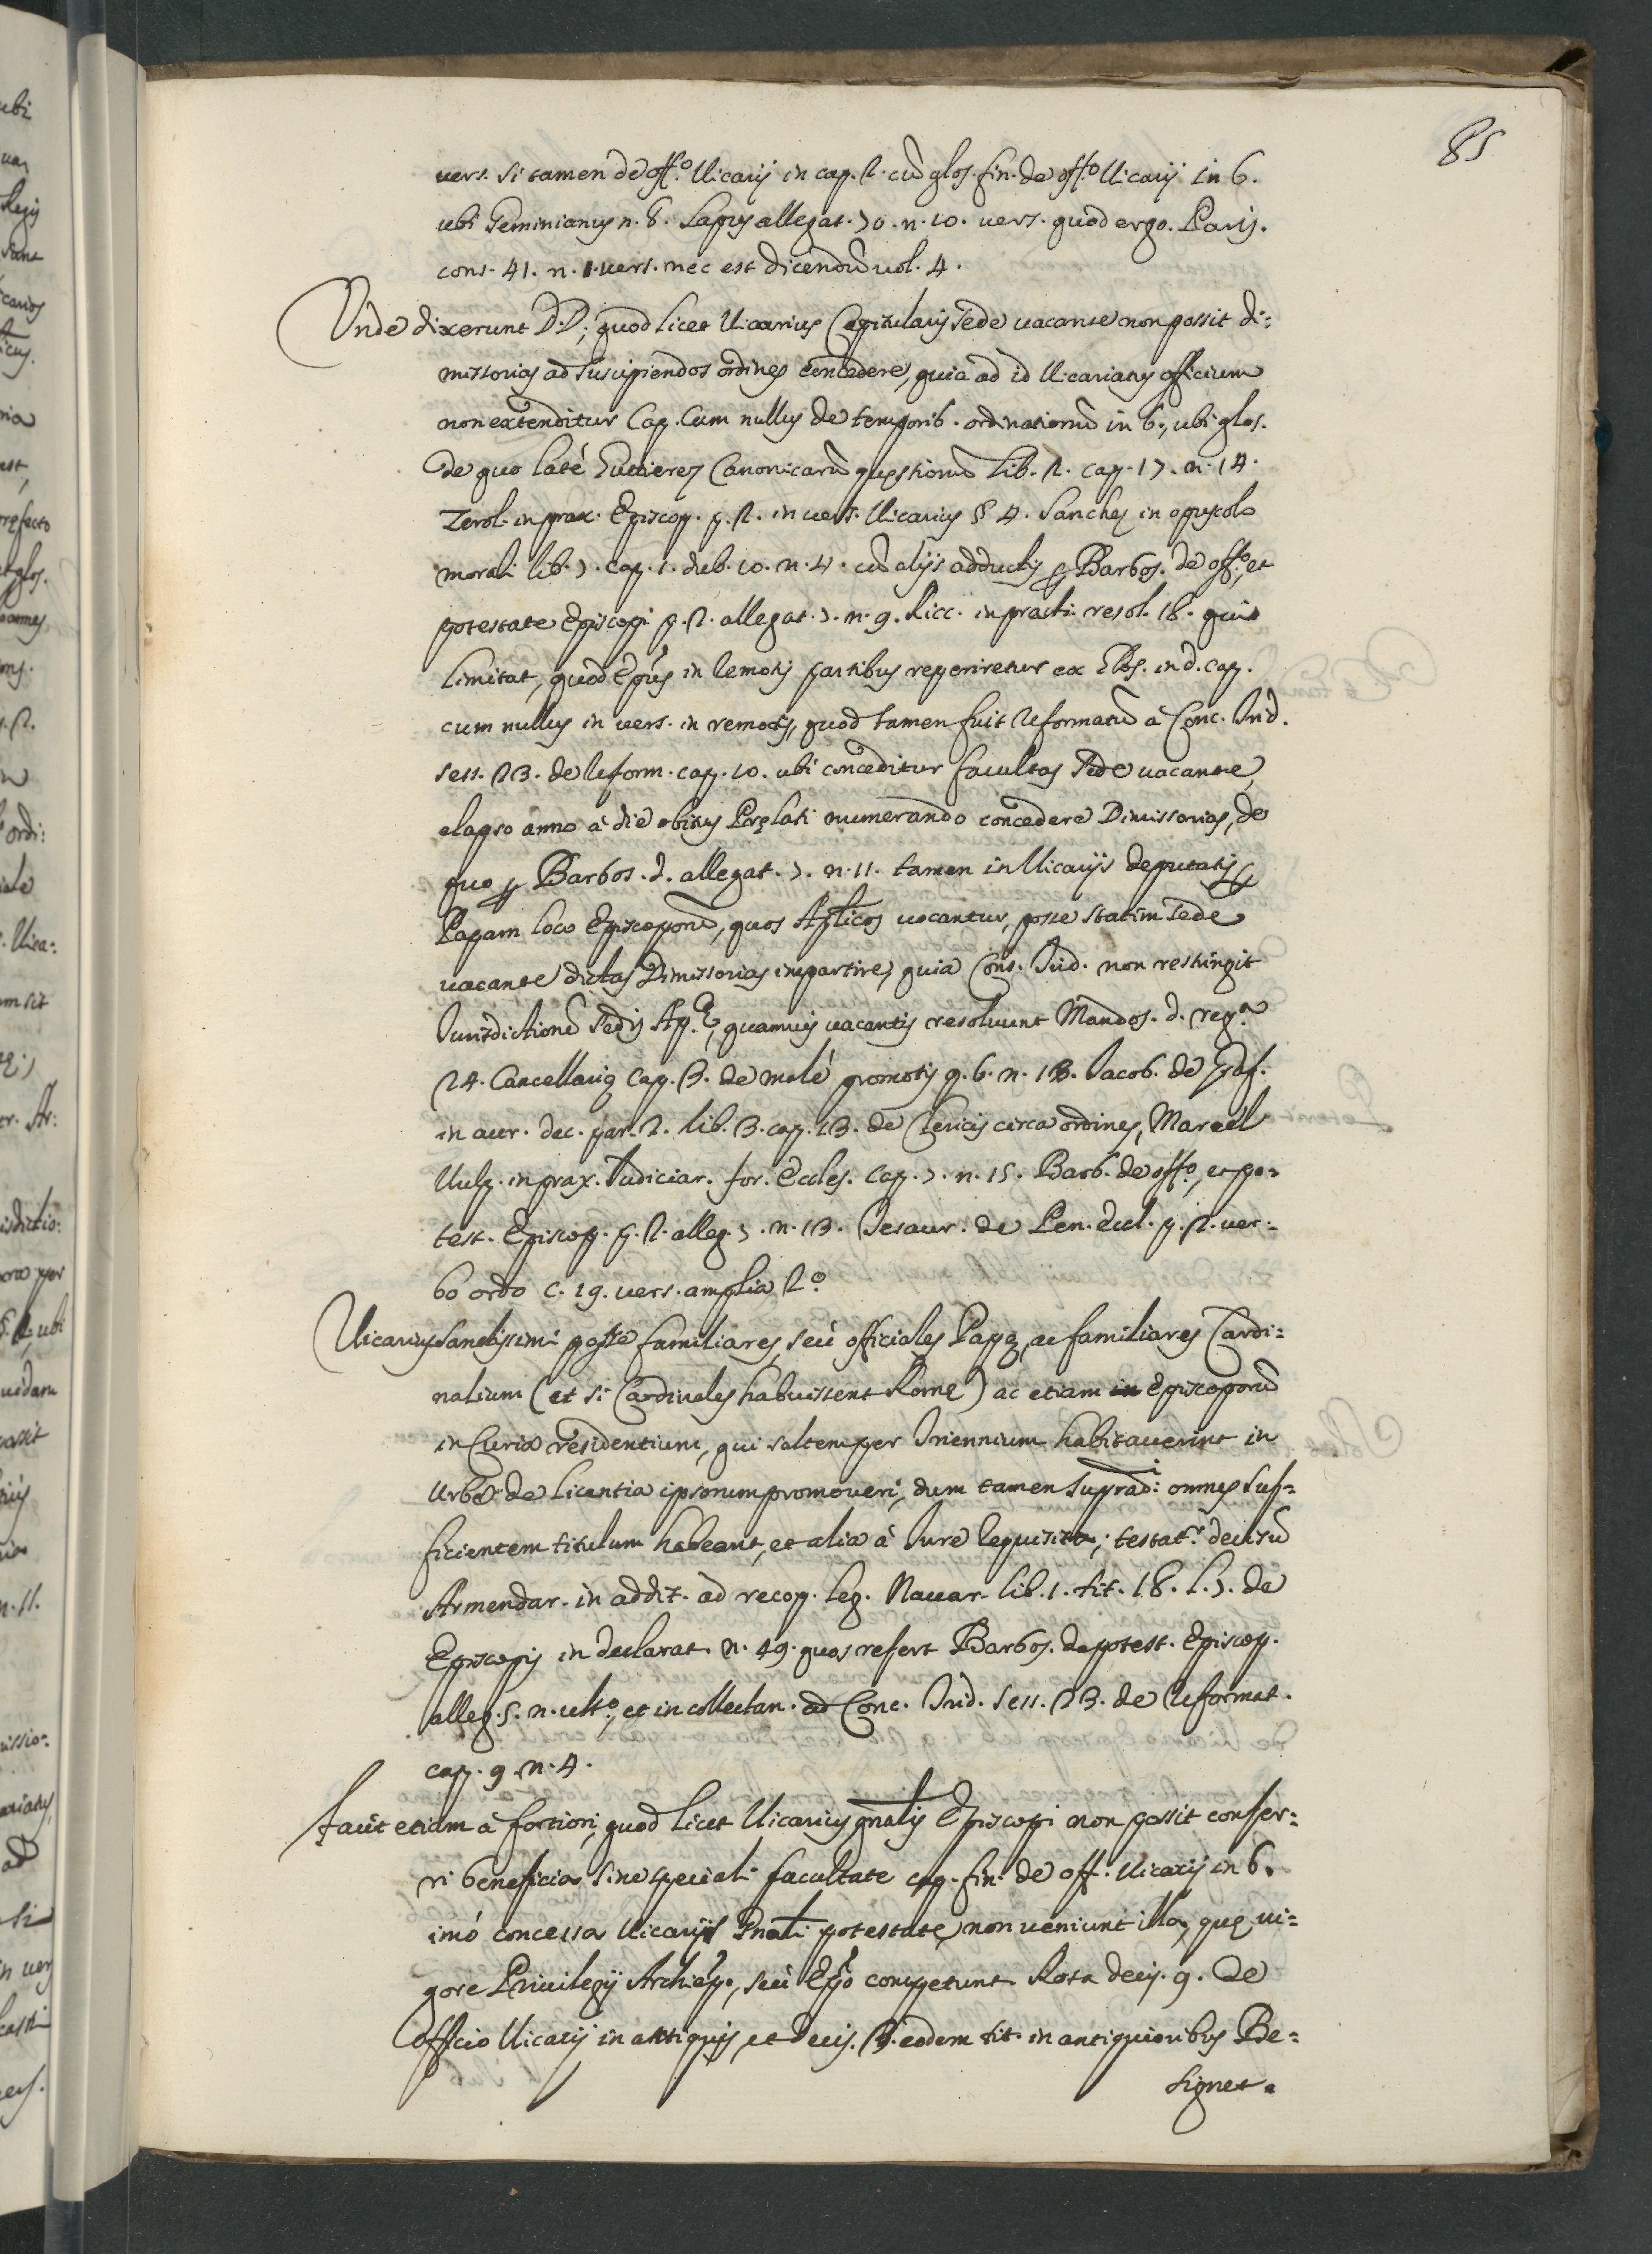 85
vers. si tamen de off.º Vicarij in cap. 2. cũ glos. fin. de off.º Vicarij in 6.
ubi Geminianus n. 8. Lapus allegat. 70. n. 10. vers. quod ergo. Paris.
cons. 41. n. 1. vers. nec est dicendũ vol. 4.
Unde dixerunt DD; quod licet Vicarius Capitularis Sede vacante non possit di=
missorias ad suscipiendos ordines concedere, quia ad id Vicariatus officium
non extenditur Cap. Cum nullus de temporib. ordinationũ in 6., ubi glos.
de quo latè Gutierez Canonicarũ quęstionũ lib. 2. cap. 17. n. 14.
Zerol. in prax. Episcop. p. 2. in vers. Vicarius § 4. Sanches in opuscolo
morali lib. 7. cap. 1. dub. 10. n. 4. cũ alijs adductis p Barbos. de off.º, et
potestate Episcopi p. 2. allegat. 7. n. 9. Ricc. in practi. resol. 18. qui
limitat, quod Epũs in remotis partibus reperiretur ex Glos. in d. cap.
cum nullus in vers. in remotis, quod tamen fuit reformatũ à Conc. Trid.
sess. 23. de reform. cap. 10. ubi conceditur facultas Sede vacante,
elapso anno à die obitus Pręlati numerando concedere Dimissorias, de
quo p Barbos. d. allegat. 7. n. 11. tamen in Vicarijs deputatis p
Papam loco Episcoporũ, quos Aplicos vocantur, posse statim Sede
vacante dictas Dimissorias impartire, quia Conc. Trid. non restringit
Jurisdictionẽ Sedis Ap.ę, quamvis vacantis resolvunt Mandos. d. reg.ª
24. Cancellarię cap. 3. de malè promotis q. 6. n. 13. Jacob. de Graf.
in aur. dec. par. 2. lib. 3. cap. 13. de Clericis circa ordines, Marcel
Vulp. in prax. Judiciar. for. Eccles. cap. 7. n. 15. Barb. de off.º, et po=
test. Episcop. p. 2. alleg. 7. n. 13. Tesaur. de Pen. Eccl. p. 2. ver=
bo ordo c. 19. vers. amplia 2.º
Vicarius Sanctissimi posse familiares, seù officiales Papę, ac familiares Cardi=
nalium (et si Cardinales habuissent Rome) ac etiam in Episcoporũ
in Curia residentium, qui saltem per Triennium habitaverint in
Urbe de licentia ipsorum promoveri, dum tamen supradi: omnes suf=
ficientem titulum habeant, et alia à Jure requisita; testat.r decisũ
Armendar. in addit. ad recop. leg. Navar. lib. 1. tit. 18. l. 7. de
Episcopis in declarat. n. 49. quos refert Barbos. de potest. Episcop.
alleg. 5. n. ult.º, et in collectan. ad Conc. Trid. sess. 23. de Reformat.
cap. 9. n. 4.
facit etiam à fortiori, quod licet Vicarius gnalis Episcopi non possit confer=
ri beneficia sine speciali facultate cap. fin. de off. Vicarij in 6.
imò concessa Vicarijs Gnali potestate, non veniunt illa, quę vi=
gore Privilegij Archiepo, seù Epo competunt. Rota decis. 9. de
Officio Vicarij in antiquis, et decis. 3. eodem tit. in antiquioribus Be=
signet.